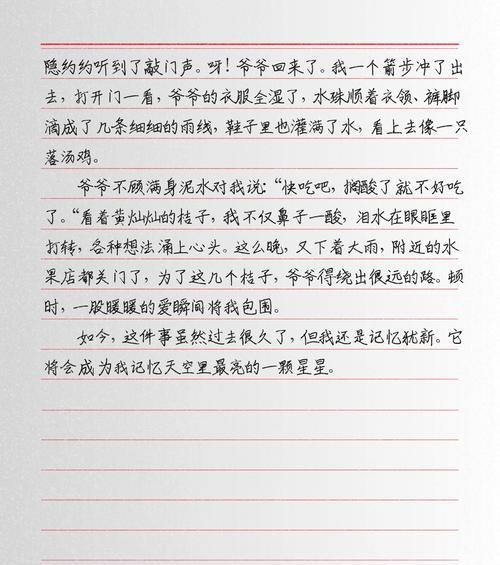 隐约约听到了敲门声。呀！爷爷回来了。我一个箭步冲了出
去，打开门一看，爷爷的衣服全湿了，水珠顺着衣领、裤脚
滴成了几条细细的雨线，鞋子里也灌满了水，看上去像一只
落汤鸡。
爷爷不顾满身泥水对我说：“快吃吧，搁酸了就不好吃
了。“看着黄灿灿的桔子，我不仅鼻子一酸，泪水在眼眶里
打转，各种想法涌上心头。这么晚，又下着大雨，附近的水
果店都关门了，为了这几个桔子，爷爷得绕出很远的路。顿
时，一股暖暖的爱瞬间将我包围。
如今，这件事虽然过去很久了，但我还是记忆犹新。它
将会成为我记忆天空里最亮的一颗星星。